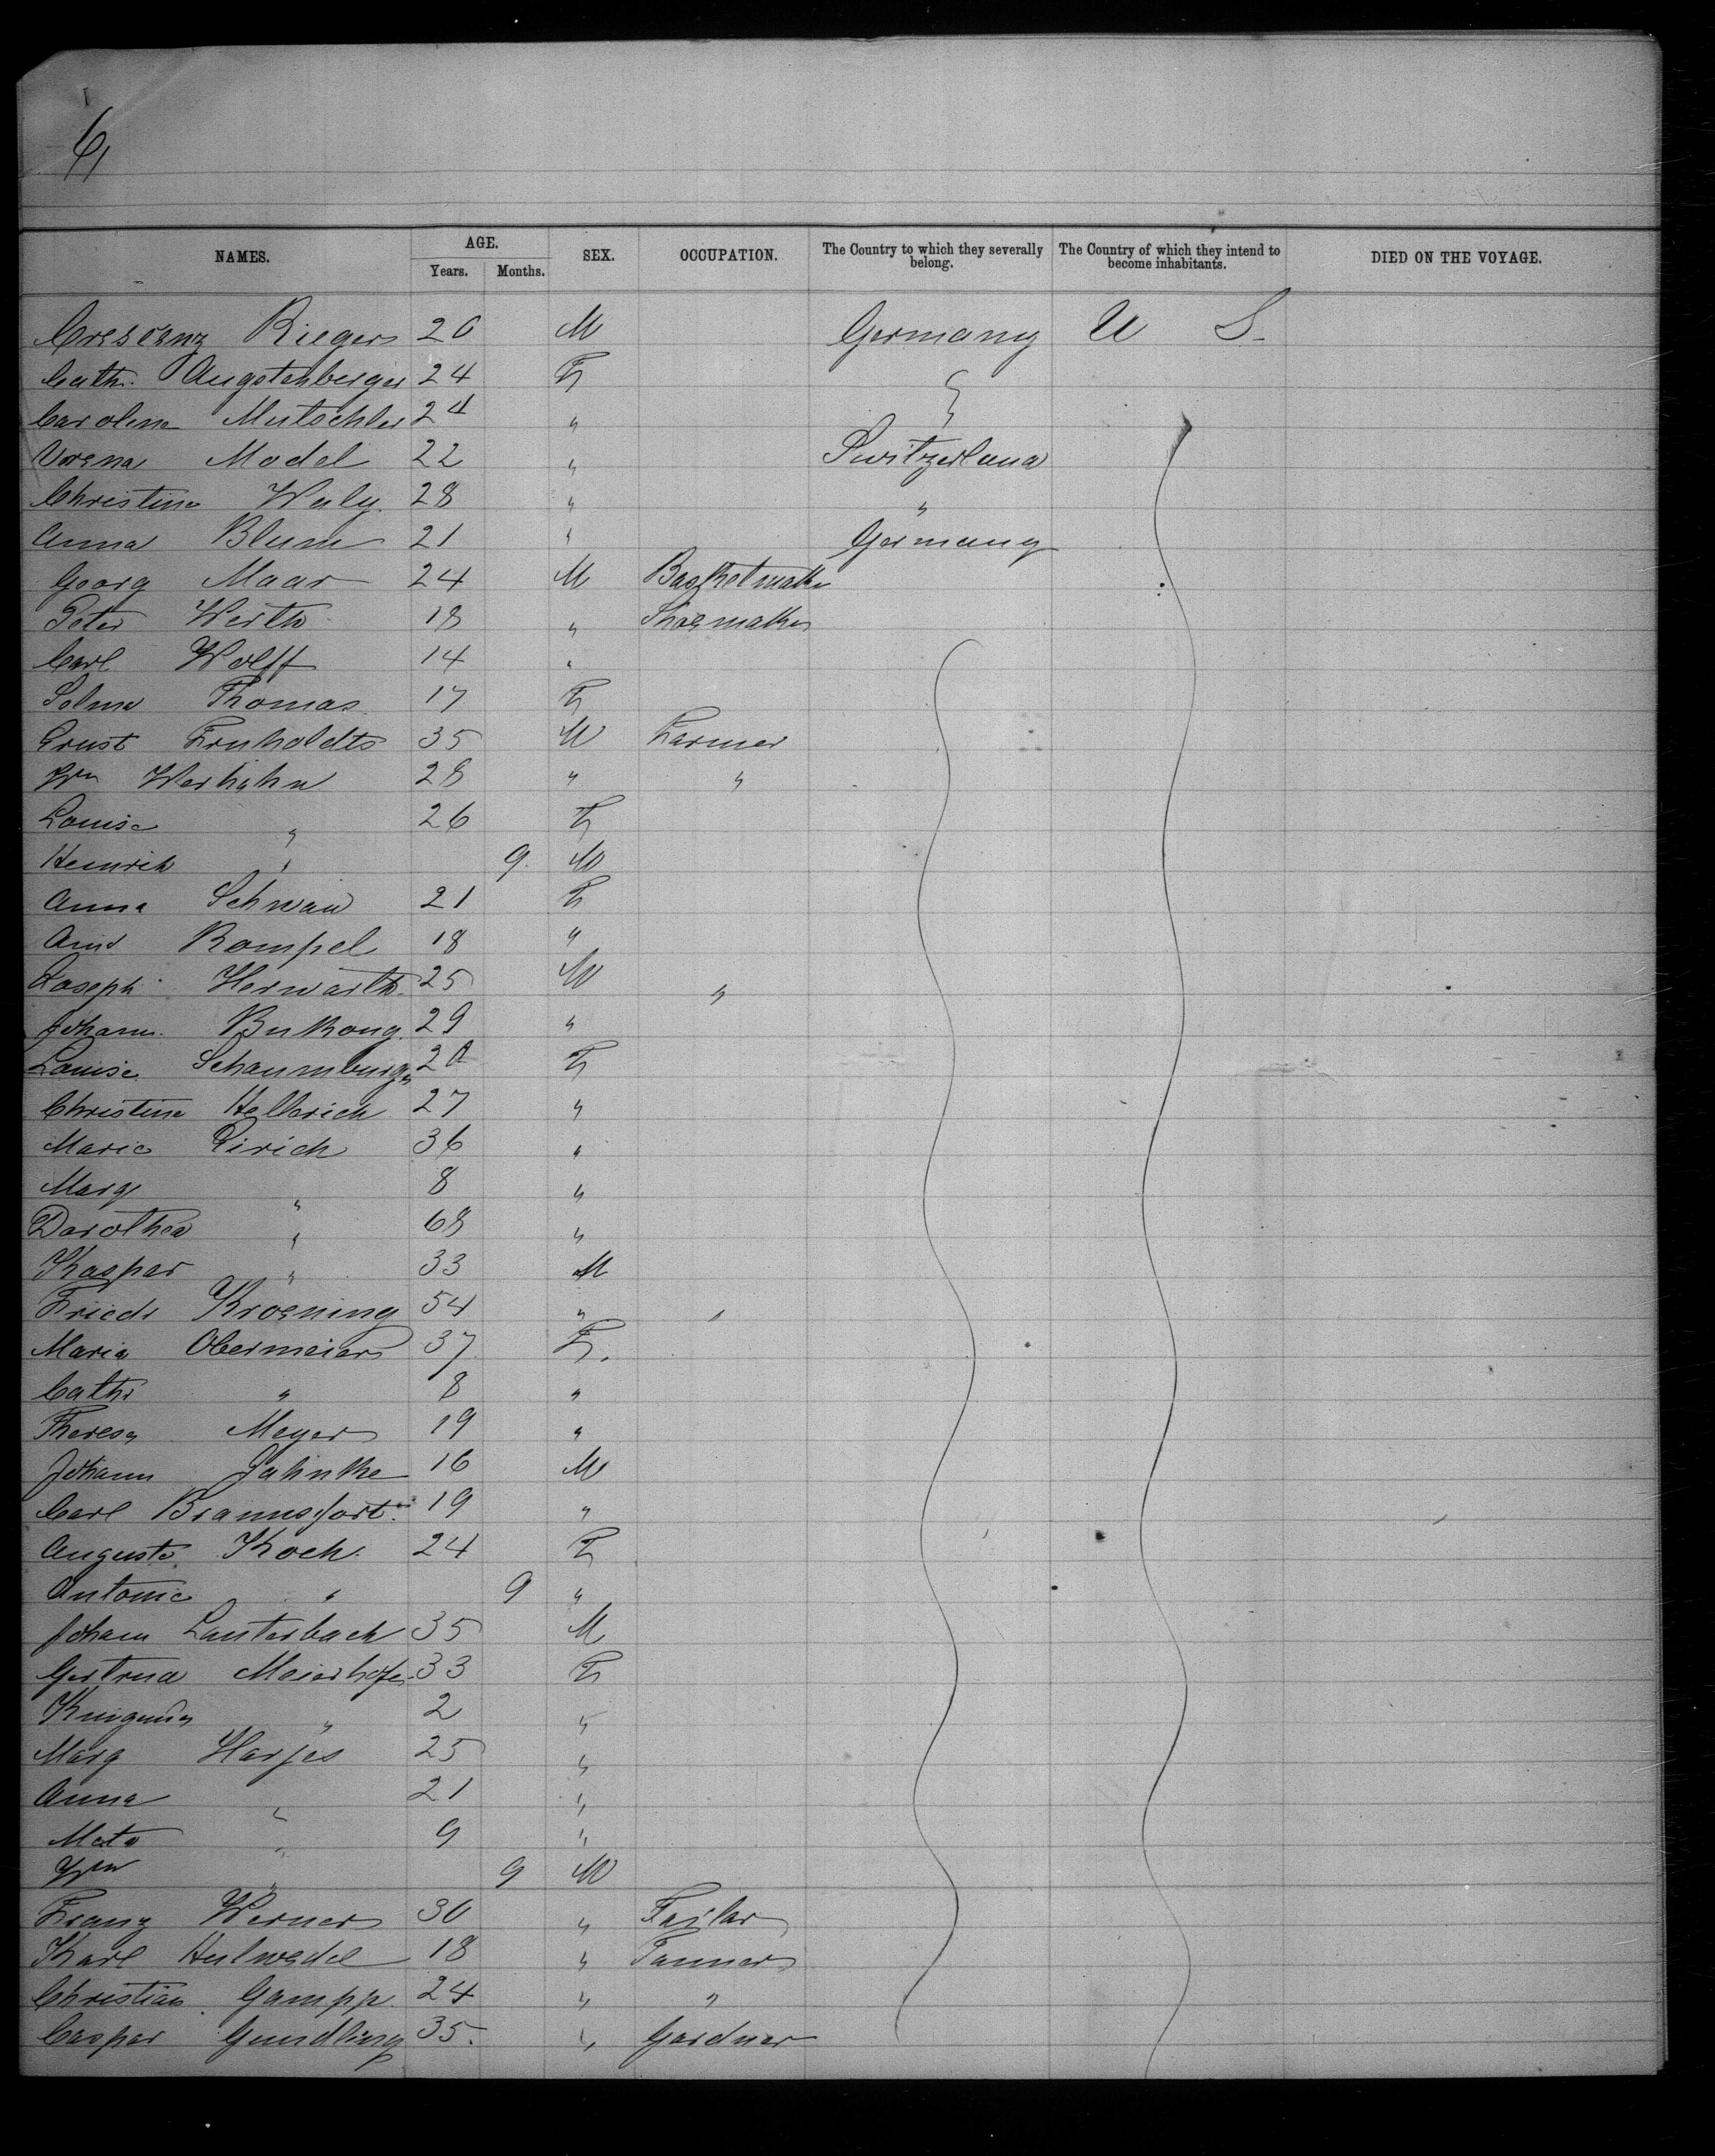 6
NAMES. AGE. SEX. OCCUPATION. The Country to which they severally belong. The Country of which they intend to become inhabitants. DIED ON THE VOYAGE.
Years. Months.
Crescenz Riegers 20 M Germany U S.
Cath. Augstenberger 24 F
Caroline Mutschler 24 "
Verena Model 22 " Switzerland
Christine Wuly. 28 " "
Anna Blum 21 " Germany
Georg Maar 24 M Basketmaker
Peter Werth 18 " Shoemaker
Carl Wolff 14 "
Selma Thomas 17 F
Ernst Fruholdts 35 M Farmer
Wm Werhahn 28 " "
Louise " 26 F
Heinrich " 9. M
Anna Schwan 21 F
Rompel 18 "
Joseph Herwarth 25 M "
Johann. Bukong. 29 "
Louise Schaumburg 20 F
Christine Hellerich 27 "
Marie Eirich 36 "
Marg " 8 "
Dorothea " 68 "
Kaspar " 33 M
Friedr Kroening 54 " "
Maria Obermeier 37 F.
Cath. " 8 "
Theresa Meyer 19 "
Johann Jahnke 16 M
Carl Braunsfort. 19 "
Auguste Koch. 24 F
Antonie " 9 "
Johann Lauterbach 35 M
Gertrud Meierhofer 33 F
" 2 "
Marg Harjes 25 "
Anna " 21 "
Meta " 9 "
Wm " 9 M
Franz Werner 30 " Tailor
Karl Helwedel 18 " Tanner
Christian Gampp. 24 " "
Caspar Gundling 35. " Gardner